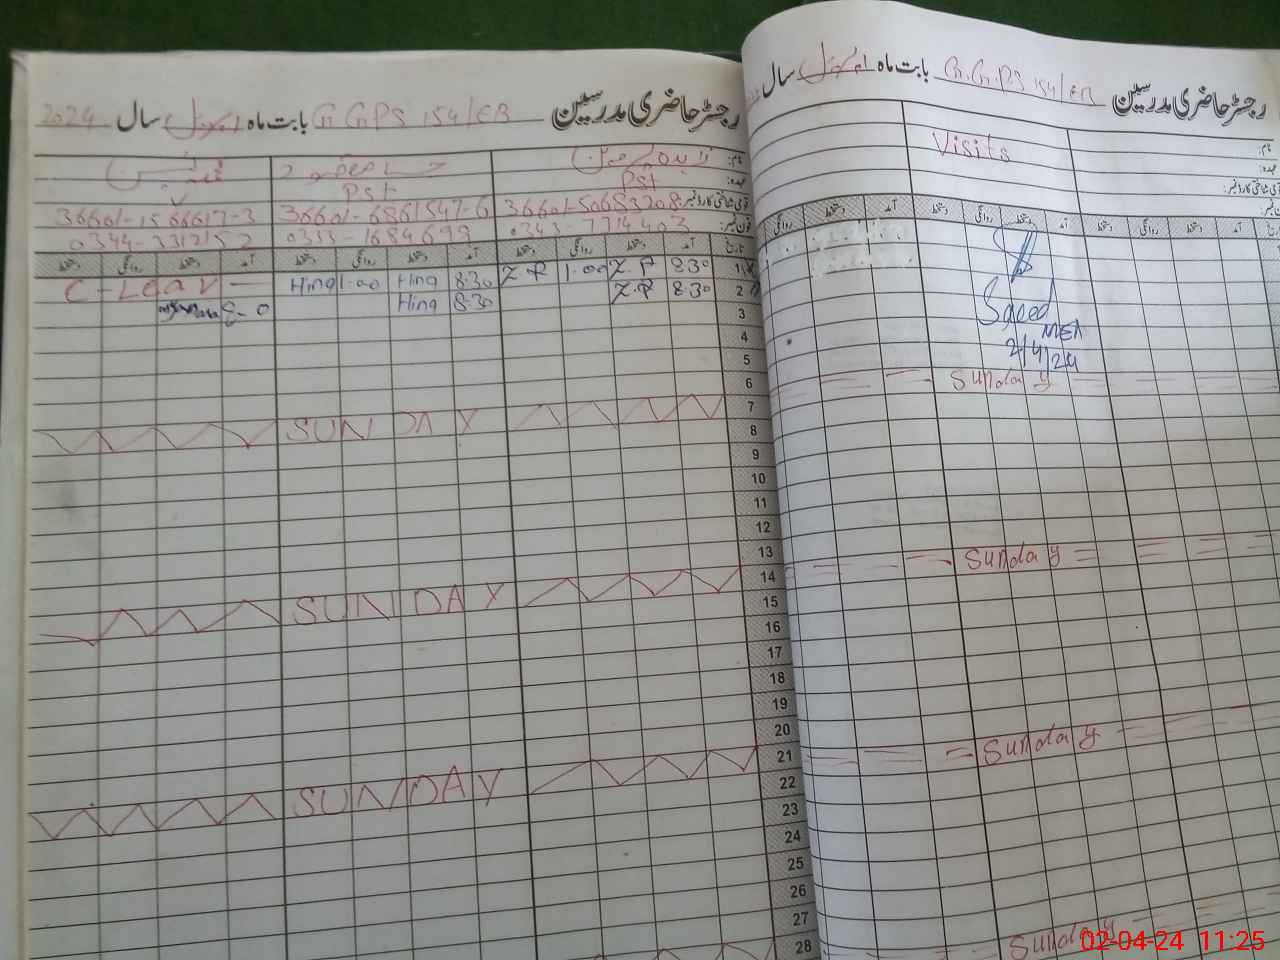 رجسٹر حاضری مدرسین G.G.PS 154/EB بابت ماہ اپریل سال 2024
نام:
عہدہ: Pst Pst
قومی شناختی کارڈ نمبر: 36601-5068320-8 36601-6861547-6 36601-1566617-3
فون نمبر: 0343-7714403 0333-1684699 0344-3312152
تاریخ آمد دستخط روانگی دستخط آمد دستخط روانگی دستخط آمد دستخط روانگی دستخط
1 8.30 Z.P 1.00 Z.P 8.30 Hina 1.00 Hina C-Leav
2 8.30 Z.P 8.30 Hina
3
4
5
6
7 SUNDAY
8
9
10
11
12
13
14 SUNDAY
15
16
17
18
19
20
21 SUNDAY
22
23
24
25
26
27
28
رجسٹر حاضری مدرسین G.G.PS 154/EB بابت ماہ اپریل سال
نام:
عہدہ:
Visits
آمد دستخط روانگی دستخط آمد دستخط روانگی دستخط آمد دستخط روانگی
Saeed
MEA
2/4/24
Sunday
Sunday
Sunday
Sunday
02-04-24 11:25